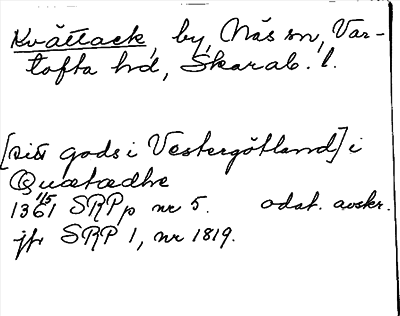 Kvättack, by, Näs sn, Var-
tofta hd, Skarab. l.
[sitt gods i Vestergötland] i
Quatadhe
1361 1/5 SRPp nr 5. odat. avskr.
jfr SRP 1, nr 1819.